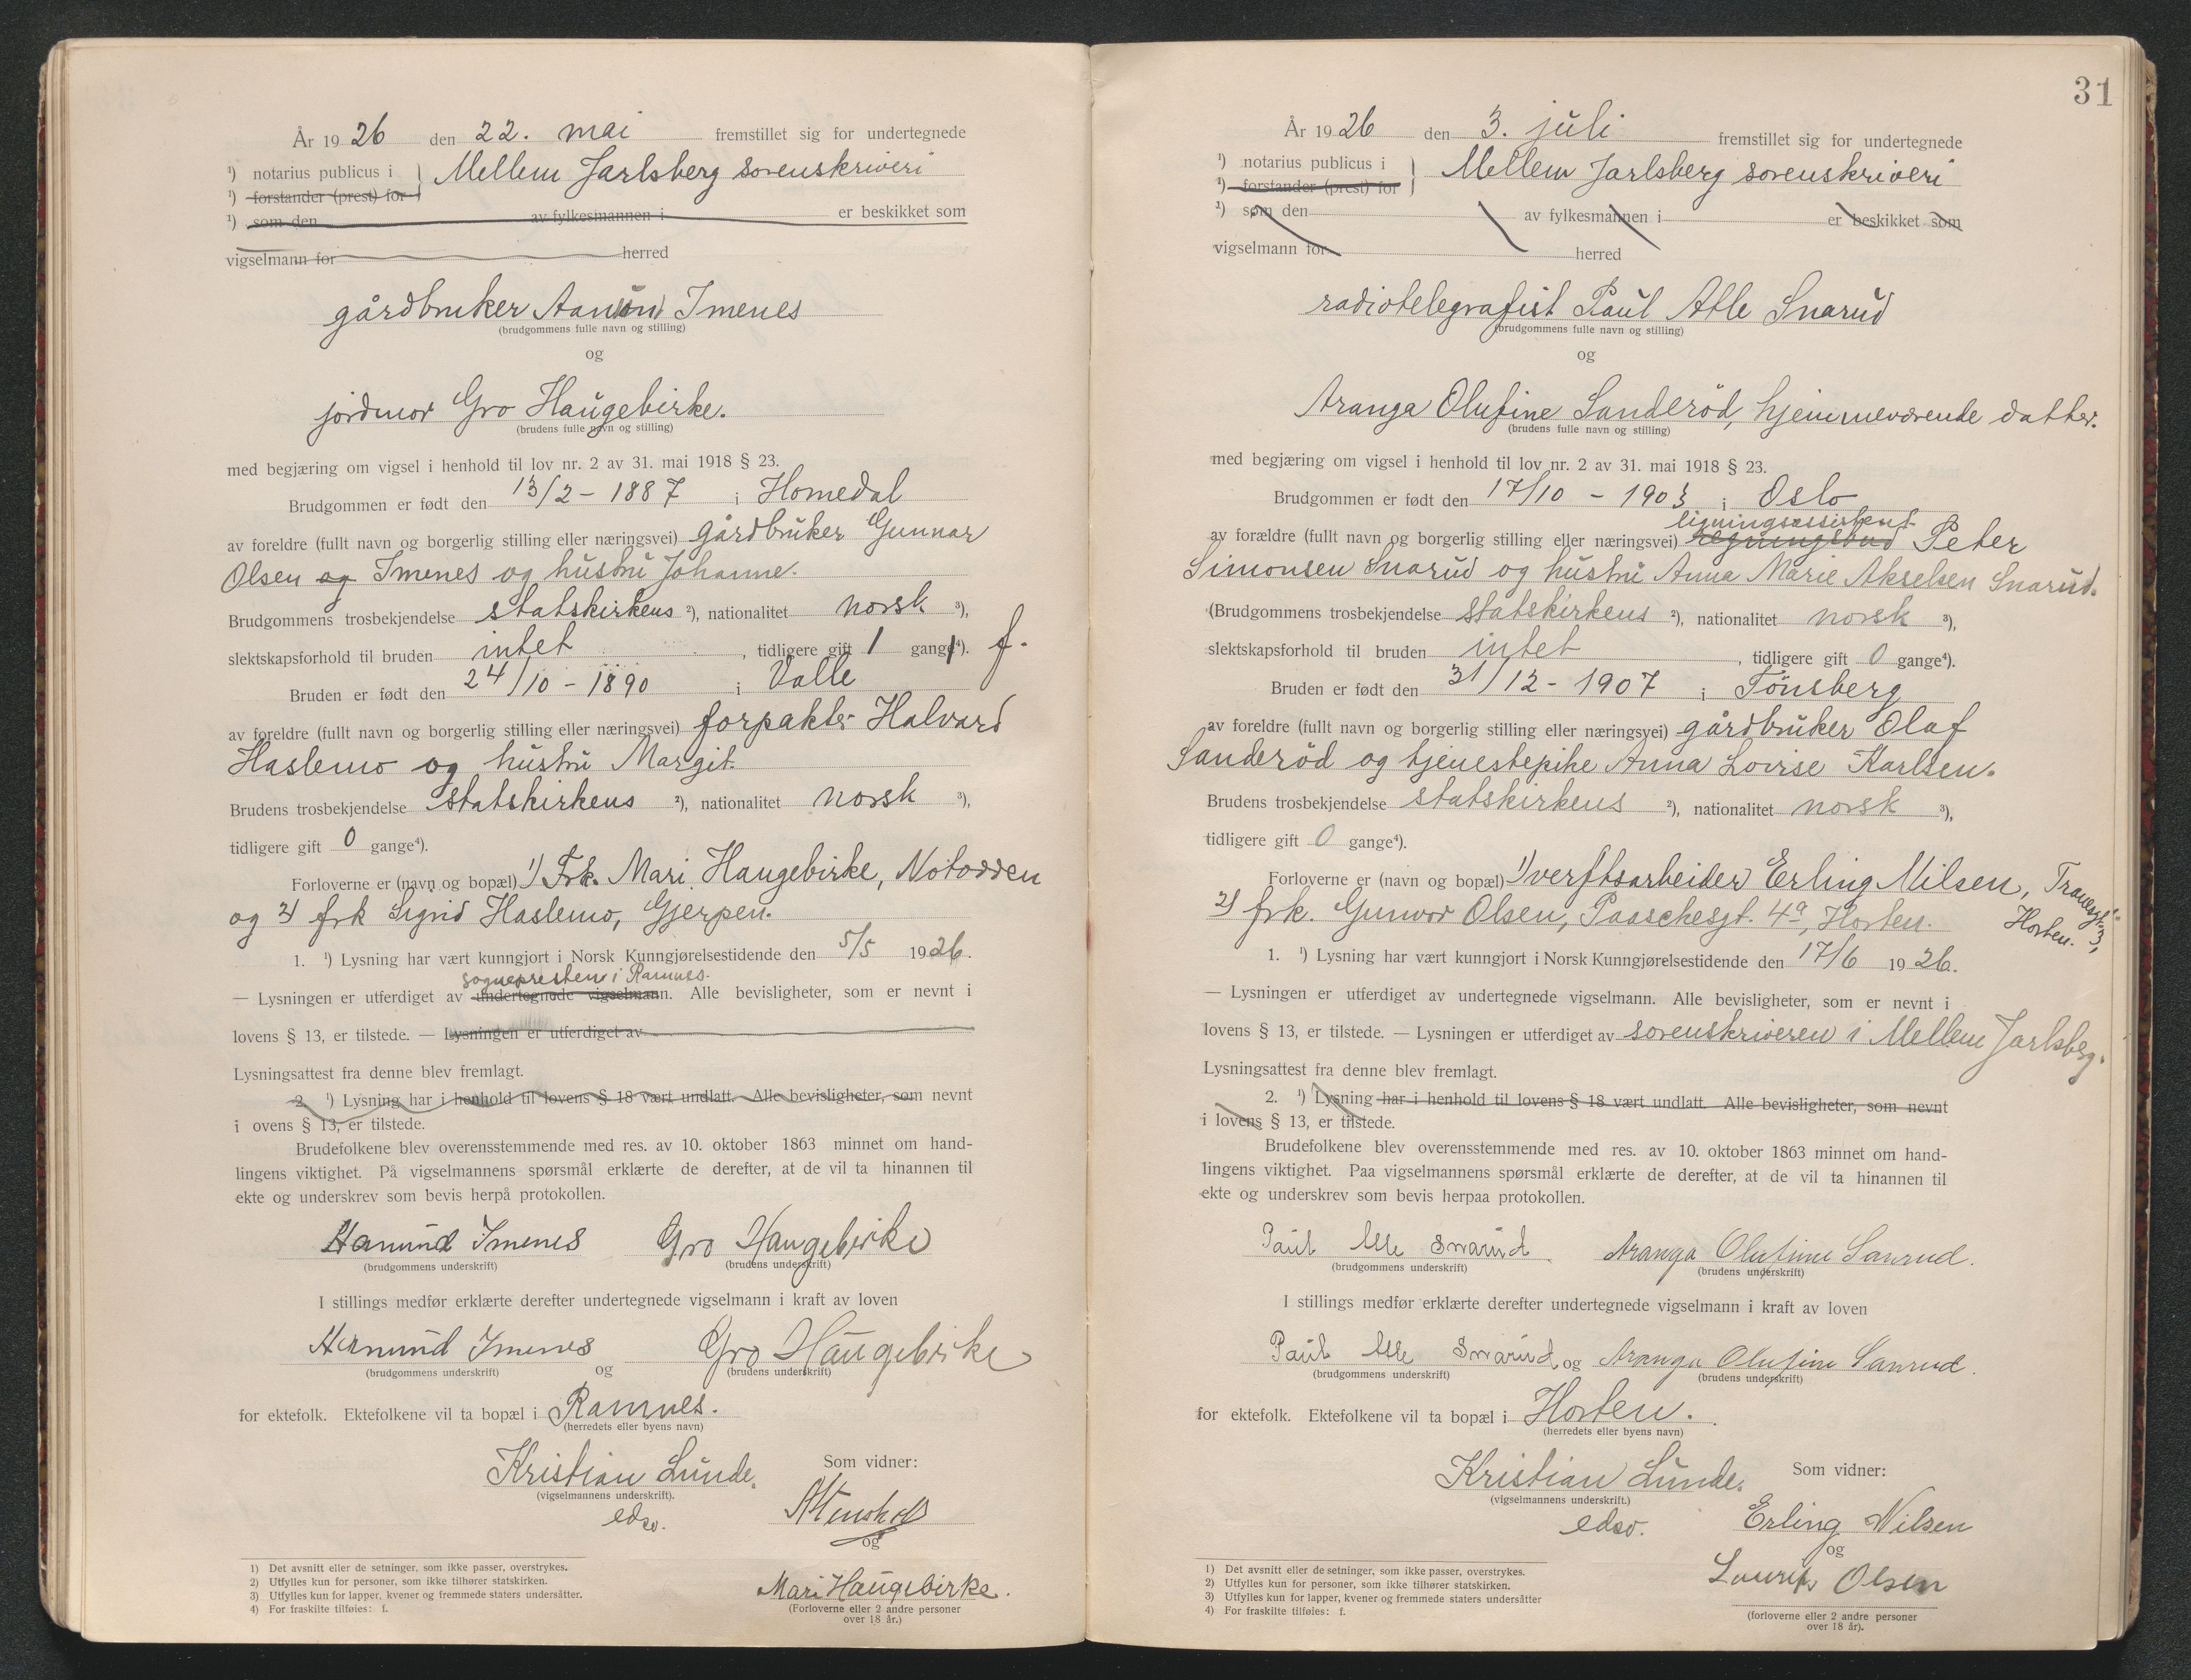 År 1926 den 22. mai fremstillet sig for undertegnede
¹) notarius publicus i } Mellem Jarlsberg sorenskriveri
¹) forstander (prest) for
¹) som den av fylkesmannen i er beskikket som
vigselmann for herred
gårdbruker Imenes
(brudgommens fulle navn og stilling)
og
jordmor Gro Haugebirke.
(brudens fulle navn og stilling)
med begjæring om vigsel i henhold til lov nr. 2 av 31. mai 1918 § 23.
Brudgommen er født den 13/2 - 1887 i Homedal
av foreldre (fullt navn og borgerlig stilling eller næringsvei) gårdbruker Gunnar
Olsen og Imenes og hustru Johanne.
Brudgommens trosbekjendelse statskirkens ²), nationalitet norsk ³),
slektskapsforhold til bruden intet, tidligere gift 1 gang⁴). f.
Bruden er født den 24/10 - 1890 i Valle
av foreldre (fullt navn og borgerlig stilling eller næringsvei) forpakter Halvard
Haslemo og hustru Margit.
Brudens trosbekjendelse statskirkens ²), nationalitet norsk ³),
tidligere gift 0 gange⁴).
Forloverne er (navn og bopæl) 1) Frk. Mari Haugebirke, Notodden
og 2) frk Sigrid Haslemo, Gjerpen.
1. ¹) Lysning har vært kunngjort i Norsk Kunngjørelsestidende den 5/5 1926.
sognepresten i Ramnes.
— Lysningen er utferdiget av undertegnede vigselmann. Alle bevisligheter, som er nevnt i
lovens § 13, er tilstede. — Lysningen er utferdiget av
Lysningsattest fra denne blev fremlagt.
2. ¹) Lysning har i henhold til lovens § 18 vært undlatt. Alle bevisligheter, som nevnt
i ovens § 13, er tilstede.
Brudefolkene blev overensstemmende med res. av 10. oktober 1863 minnet om hand-
lingens viktighet. På vigselmannens spørsmål erklærte de derefter, at de vil ta hinannen til
ekte og underskrev som bevis herpå protokollen.
Aanund Imenes Gro Haugebirke
(brudgommens underskrift) (brudens underskrift)
I stillings medfør erklærte derefter undertegnede vigselmann i kraft av loven
Aanund Imenes og Gro Haugebirke
(brudgommens underskrift) (brudens underskrift)
for ektefolk. Ektefolkene vil ta bopæl i Ramnes.
(herredets eller byens navn)
Kristian Lunde. Som vidner:
(vigselmannens underskrift).
edsv.
og
Mari Haugebirke.
(Forloverne eller 2 andre personer
over 18 år.)
1) Det avsnitt eller de setninger, som ikke passer, overstrykes.
2) Utfylles kun for personer, som ikke tilhører statskirken.
3) Utfylles kun for lapper, kvener og fremmede staters undersåtter.
4) For fraskilte tilføies: f.
31
År 1926 den 3. juli fremstillet sig for undertegnede
¹) notarius publicus i } Mellem Jarlsberg sorenskriveri
¹) forstander (prest) for
¹) som den av fylkesmannen i er beskikket som
vigselmann for herred
radiotelegrafist Paul Atle Snarud
(brudgommens fulle navn og stilling)
og
Aranga Olufine Sanderød, hjemmeværende datter.
(brudens fulle navn og stilling)
med begjæring om vigsel i henhold til lov nr. 2 av 31. mai 1918 § 23.
Brudgommen er født den 17/10 - 1903 i Oslo
ligningsassistent
av forældre (fullt navn og borgerlig stilling eller næringsvei) Peter
Simonsen Snarud og hustru Anna Marie Akselsen Snarud.
(Brudgommens trosbekjendelse statskirkens ²), nationalitet norsk ³),
slektskapsforhold til bruden intet, tidligere gift 0 gange⁴).
Bruden er født den 31/12 - 1907 i Tönsberg
av foreldre (fullt navn og borgerlig stilling eller næringsvei) gårdbruker Olaf
Sanderød og tjenestepike Anna Lovise Karlsen.
Brudens trosbekjendelse statskirkens ²), nationalitet norsk ³),
tidligere gift 0 gange⁴).
Forloverne er (navn og bopæl) 1) verftsarbeider Erling Nilsen, Tranesgt. 3,
Horten.
2) frk. Gunvor Olsen, Paaschesgt. 4a, Horten.
1. ¹) Lysning har vært kunngjort i Norsk Kunngjørelsestidende den 17/6 1926.
— Lysningen er utferdiget av undertegnede vigselmann. Alle bevisligheter, som er nevnt i
lovens § 13, er tilstede. — Lysningen er utferdiget av sorenskriveren i Mellem Jarlsberg.
Lysningsattest fra denne blev fremlagt.
2. ¹) Lysning har i henhold til lovens § 18 vært undlatt. Alle bevisligheter, som nevnt
i lovens § 13, er tilstede.
Brudefolkene blev overensstemmende med res. av 10. oktober 1863 minnet om hand-
lingens viktighet. Paa vigselmannens spørsmål erklærte de derefter, at de vil ta hinannen til
ekte og underskrev som bevis herpaa protokollen.
Paul Atle Snarud Aranga Olufine Sanrud.
(brudgommens underskrift) (brudens underskrift)
I stillings medfør erklærte derefter undertegnede vigselmann i kraft av loven
Paul Atle Snarud og Aranga Olufine Sanrud.
(brudgommens underskrift) (brudens underskrift)
for ektefolk. Ektefolkene vil ta bopæl i Horten.
(herredets eller byens navn)
Kristian Lunde. Som vidner:
(vigselmannens underskrift.)
edsv. Erling Nilsen
og
Olsen
(forloverne eller 2 andre personer
over 18 år).
1) Det avsnitt eller de setninger, som ikke passer, overstrykes.
2) Utfylles kun for personer, som ikke tilhører statskirken.
3) Utfylles kun for lapper, kvener og fremmede staters undersåtter
4) For fraskilte tilføies: f.